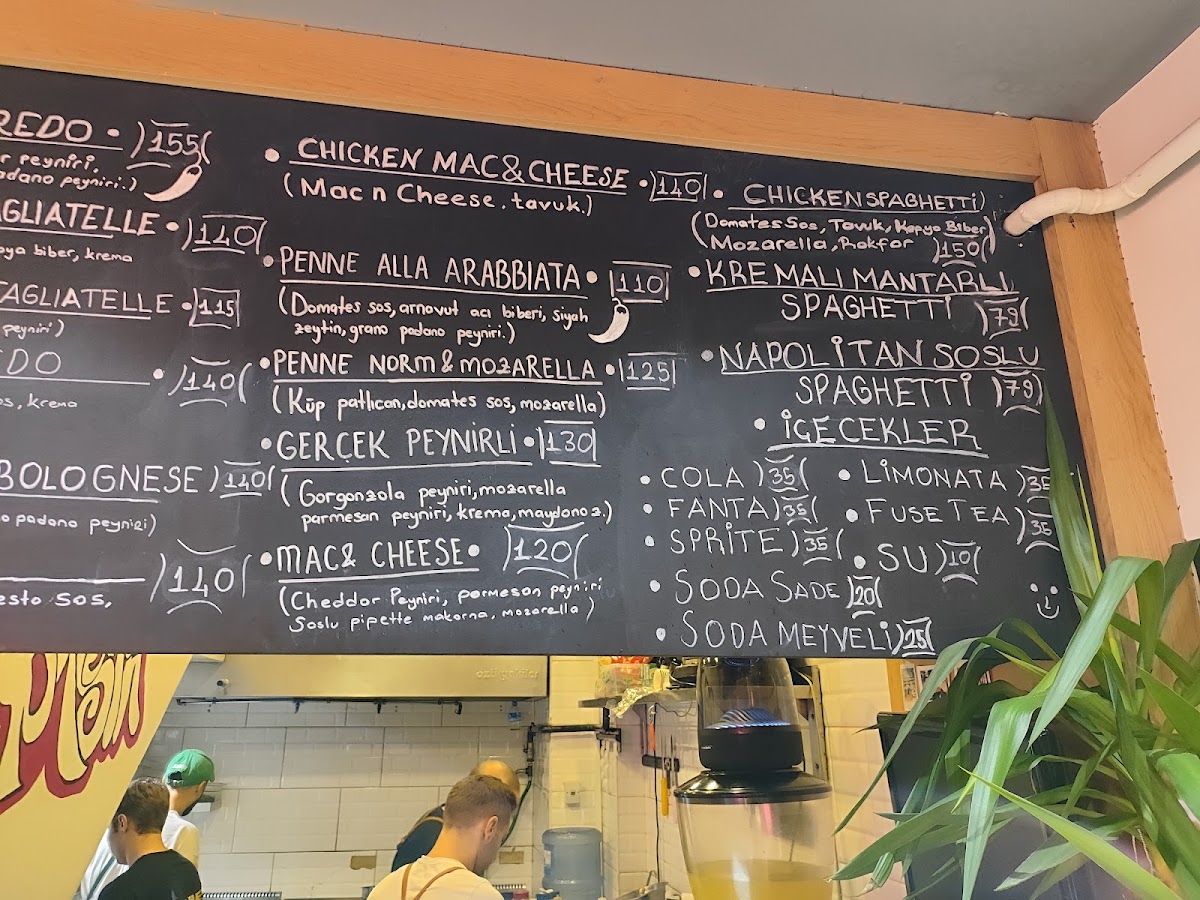 REDO • 155
r peyniri,
adano peyniri.)
AGLIATELLE • 140
pya biber, krema
TAGLIATELLE • 115
peyniri)
EDO • 140
os, krema
BOLOGNESE 140
no padano peyniri)
140
esto sos,
• CHICKEN MAC&CHEESE • 140
(Mac n Cheese, tavuk.)
• PENNE ALLA ARABBIATA • 110
(Domates sos, arnavut acı biberi, siyah
zeytin, grano padano peyniri.)
• PENNE NORM & MOZARELLA • 125
(Küp patlıcan, domates sos, mozarella)
• GERÇEK PEYNİRLİ • 130
(Gorgonzola peyniri, mozarella
parmesan peyniri, krema, maydonoz.)
• MAC & CHEESE • 120
(Cheddar Peyniri, parmesan peyniri
Soslu pipette makarna, mozarella)
• CHICKEN SPAGHETTİ
(Domates Sos, Tavuk, Kapya Biber)
Mozarella, Rokfor 150
• KREMALI MANTARLI
SPAGHETTİ 79
• NAPOLİTAN SOSLU
SPAGHETTİ 79
• İÇECEKLER
• COLA 35
• FANTA 35
• SPRİTE 35
• SODA SADE 20
• SODA MEYVELİ 25
• LİMONATA 35
• FUSE TEA 35
• SU 10